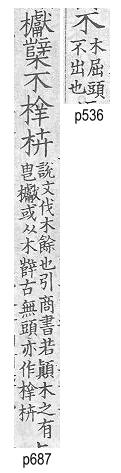 木屈頭
不出也
p536
𣡌櫱𣎴榟枿
說文伐木餘也引商書若顛木之有
甹𣡌或从木辥古無頭亦作榟枿
p687